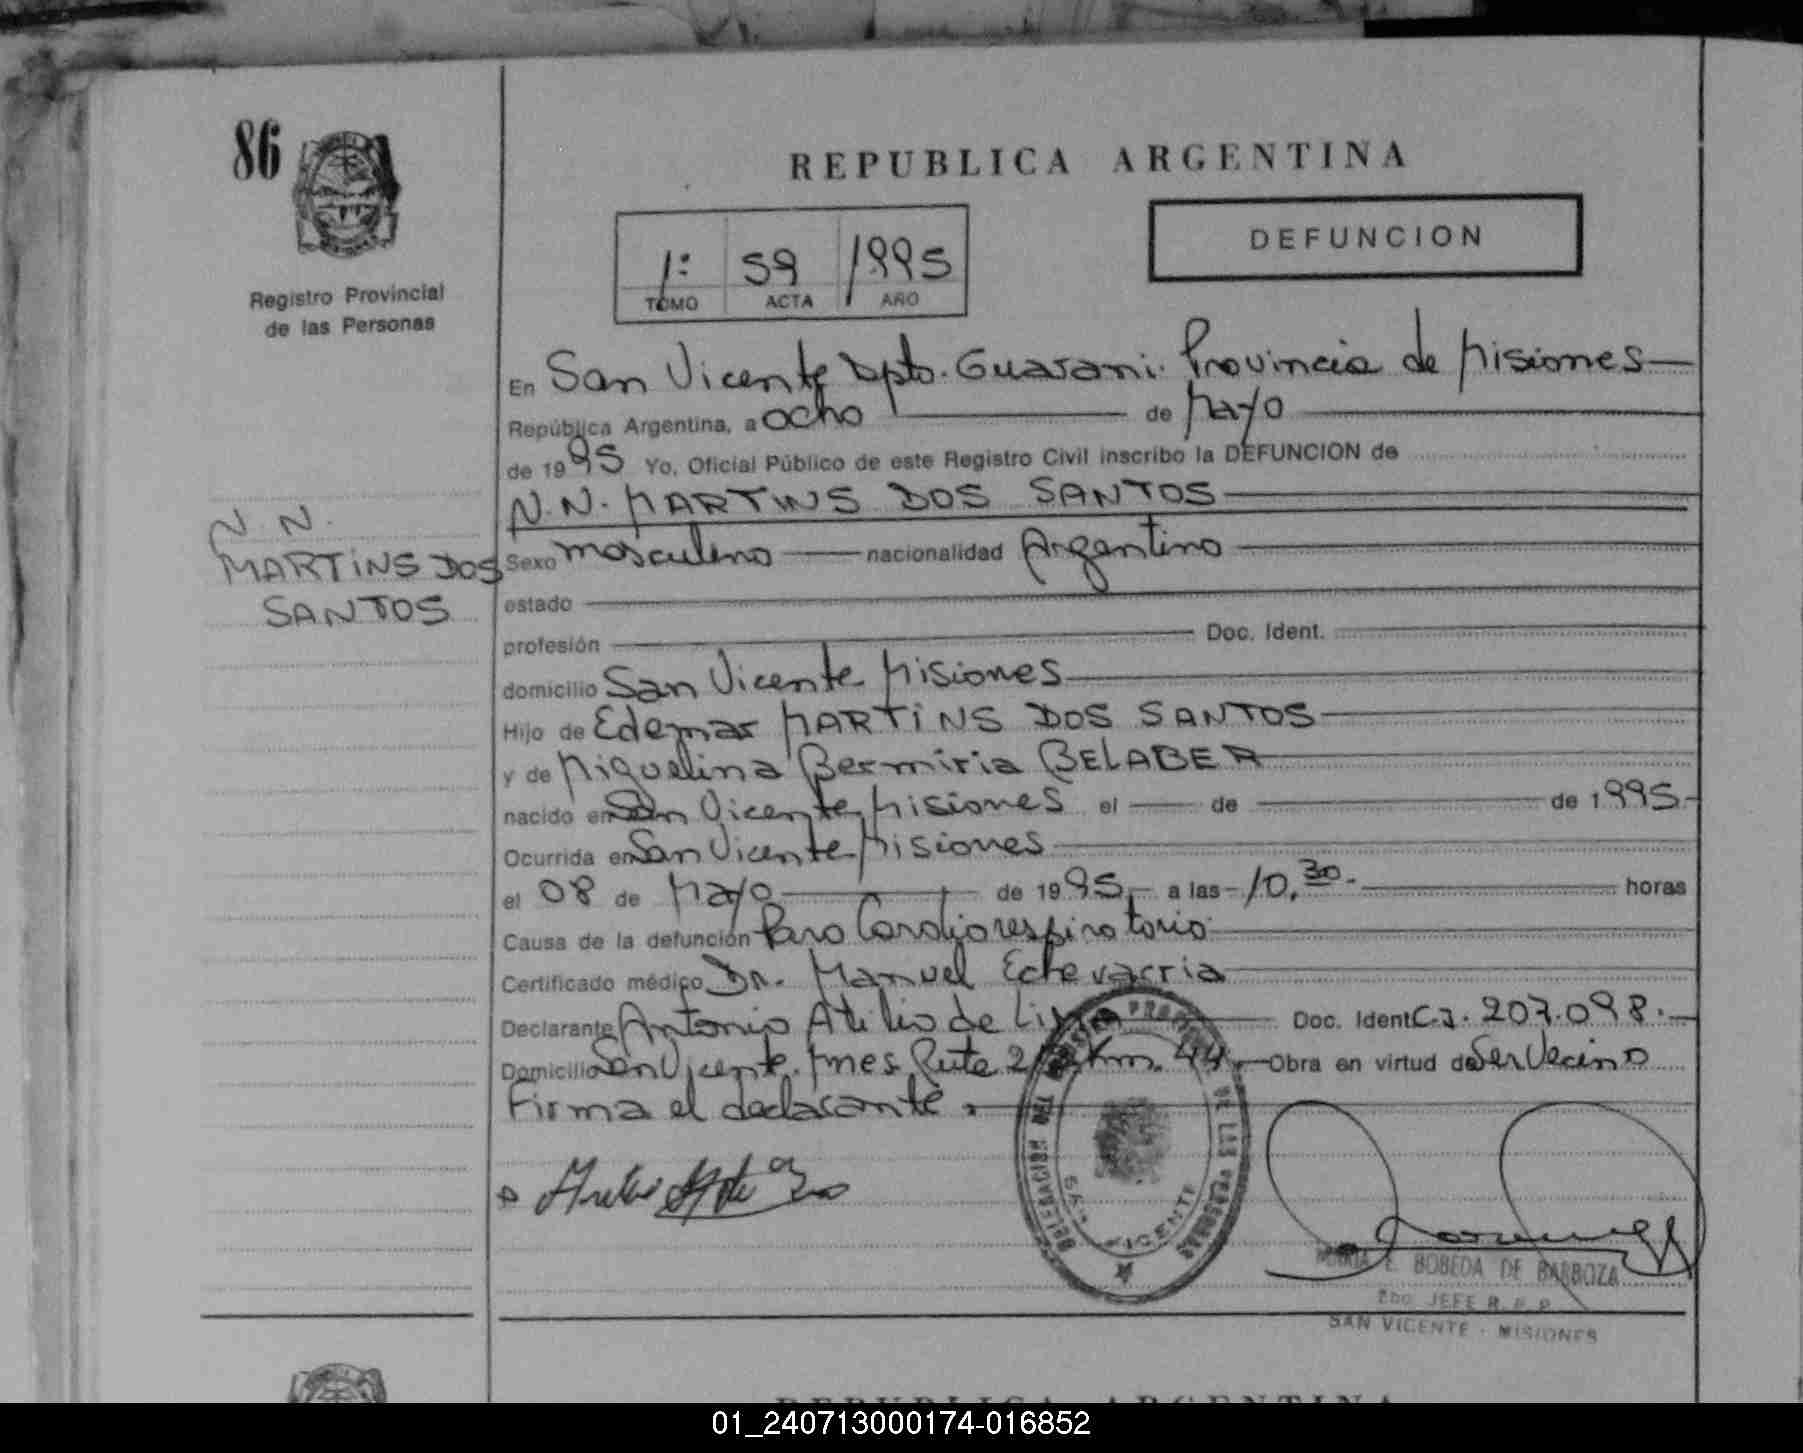 86
REPUBLICA ARGENTINA
DEFUNCION
1º 59 1995
TOMO ACTA AÑO
Registro Provincial
de las Personas
En San Vicente Dpto. Guarani. Provincia de Misiones
República Argentina, a ocho de Mayo
de 1995 Yo, Oficial Público de este Registro Civil inscribo la DEFUNCION de
N.N. MARTINS DOS SANTOS
N. N.
MARTINS DOS
SANTOS
Sexo masculino nacionalidad Argentino
estado
profesión Doc. Ident.
domicilio San Vicente Misiones
Hijo de Edemar MARTINS DOS SANTOS
y de Miguelina Bermiria BELABER
nacido en San Vicente Misiones el de de 1995
Ocurrida en San Vicente Misiones
el 08 de Mayo de 1995 a las 10,30 horas
Causa de la defunción Paro Cardiorespiratorio
Certificado médico Dr. Manuel Echevarria
Declarante Antonio Atilio de Doc. Ident. C.I. 207.098.
Domicilio San Vicente. Mnes. Ruta Km. 44. Obra en virtud de Ser Vecino
Firma el declarante.
DELEGACION DEL REGISTRO PROVINCIAL DE LAS PERSONAS
SAN VICENTE
MARIA E. BOBEDA DE BARBOZA
2do JEFE R. P. P.
SAN VICENTE - MISIONES
REPUBLICA ARGENTINA
01_240713000174-016852